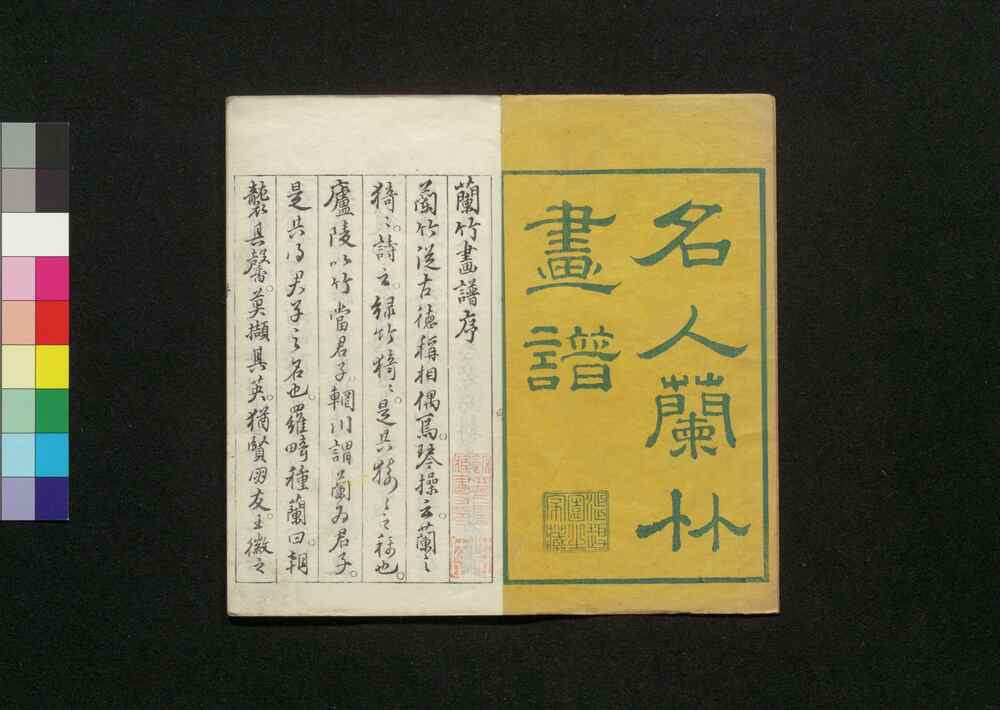 名人蘭竹
畫譜
蘭竹畫譜序
蘭竹從古德稱相偶焉琴操云蘭之
猗〻詩云綠竹猗〻是共猗〻之稱也
廬陵以竹當君子輞川謂蘭為君子
是共得君子之名也羅畸種蘭曰朝
襲其馨莫擷其英猶賢朋友王徽之